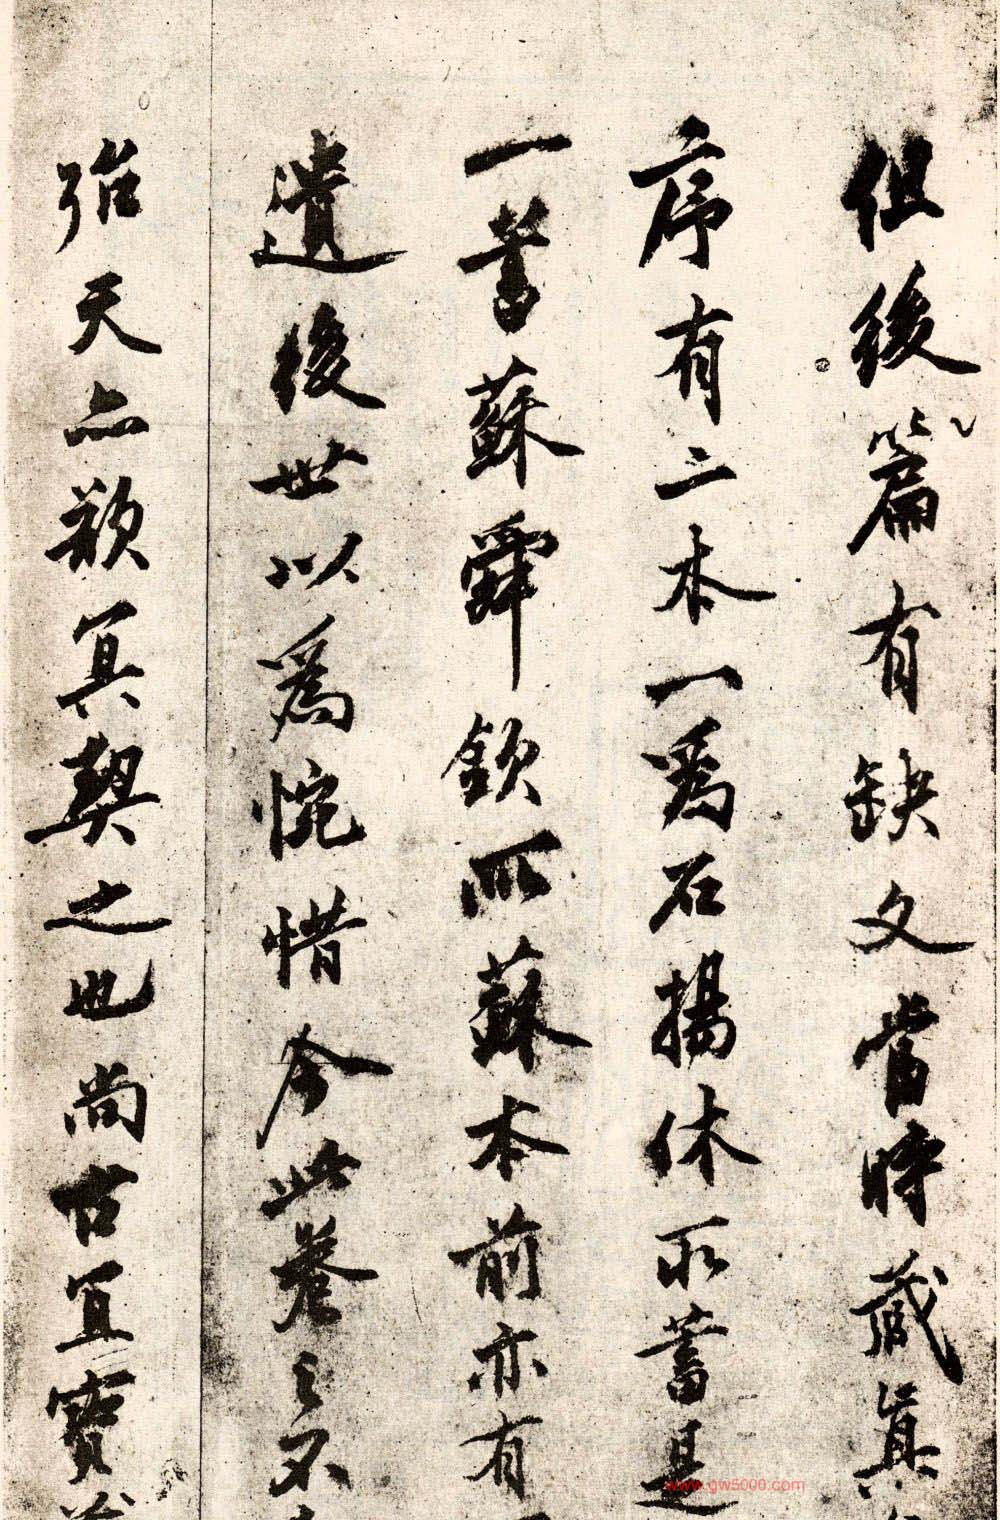 但後篇有缺文當時藏真
序有二本一爲石揚休所蓄是
一書蘇舜欽所蘇本前亦有
遺後世以爲惋惜今此卷之不
天亦欲冥契之也尚古宜寶
www.gw5000.com